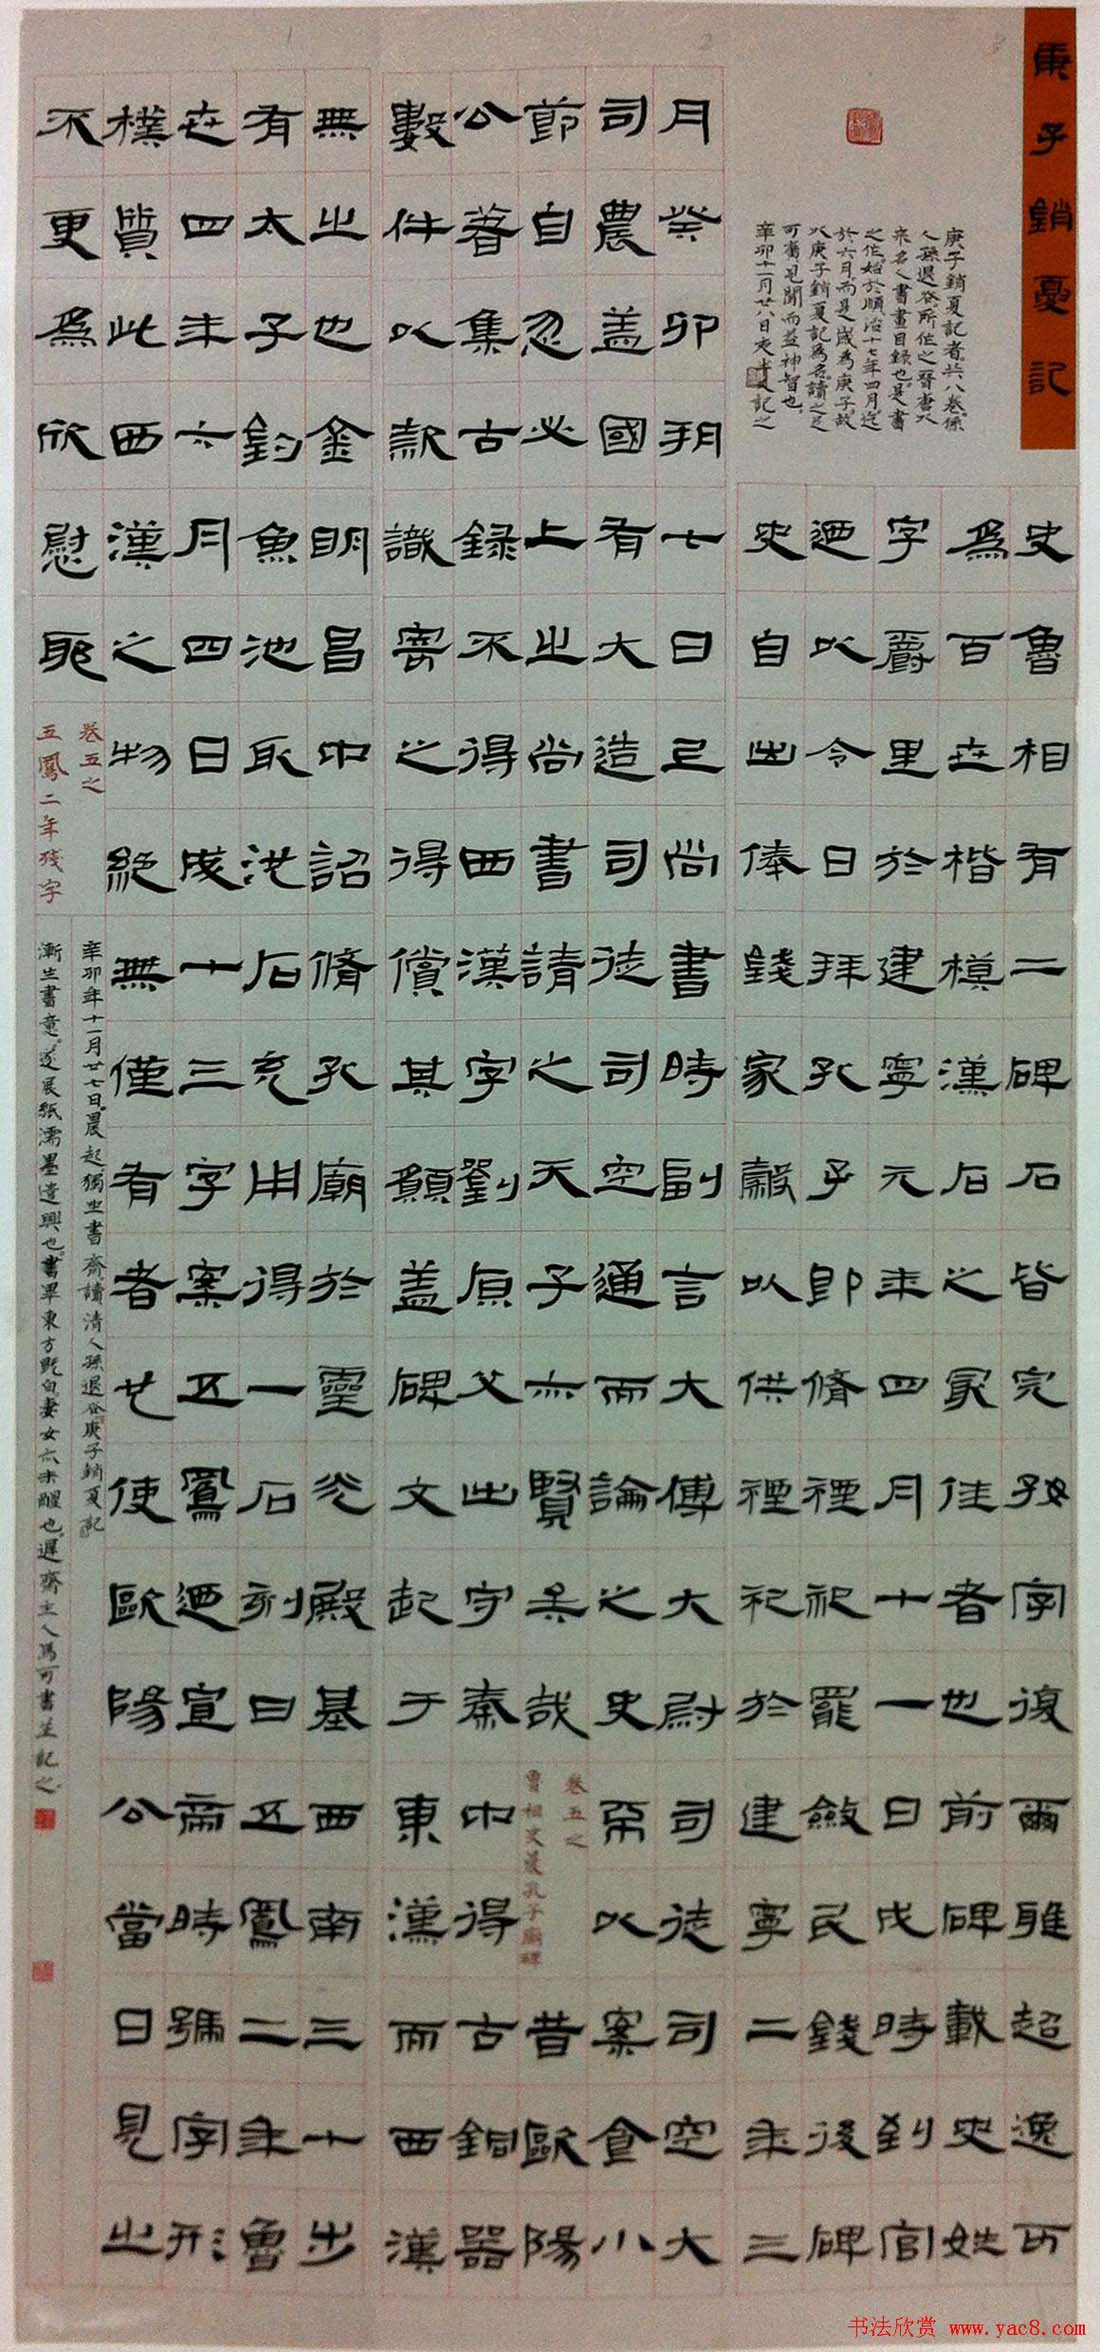 庚子銷夏記
庚子銷夏記者。共八卷。係
人孫退谷所作之晉唐以
來名人書畫目錄也。是書
之作。始於順治十七年四月。迄
於六月。而是歲為庚子。故
以庚子銷夏記為名。讀之足
可廣見聞而益神智也。
辛卯十一月廿八日記之
史魯相有二碑石皆完好字復爾雅超逸可
為百世楷模漢石之冣佳者也前碑載史姓
字爵里於建寧元年四月十一日戊時到官
迺以令日拜孔子即脩禋祀罷斂民錢後碑
史自出俸錢家穀以供禋祀於建寧二年三
月癸卯朔七日己尚書時副言大傅大尉司徒司空大
司農蓋國有大造司徒司空通而論之史以案食小
節自忽必上之尚書請之天子亦賢矣哉
卷五之
魯相史晨孔子廟碑
昔歐陽
公著集古錄不得西漢字劉原父出守秦中得古銅器
數件以款識寄之得償其願蓋碑文起于東漢而西漢
無之也金明昌中詔脩孔廟於靈光殿基西南三十步
有太子釣魚池取池石充用得一石刻曰五鳳二年魯
世四年六月四日成十三字案五鳳迺宣帝時號字形
樸質此西漢之物絕無僅有者也使歐陽公當日見之
不更為欣慰耶
卷五之
五鳳二年殘字
辛卯年十一月廿七日。晨起獨坐書齋讀清人孫退谷庚子銷夏記
漸生書意。遂展紙濡墨遣興也。書畢東方既白。妻女亦未醒也。遲齋主人馬可書並記之。
书法欣赏 www.yac8.com